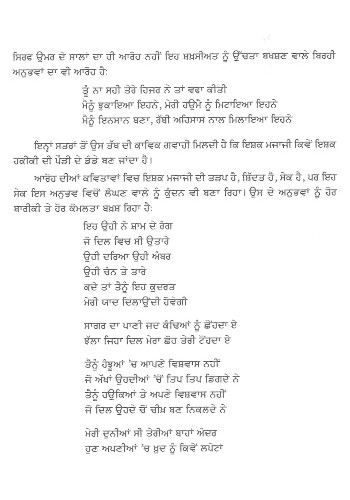 ਸਿਰਫ ਉਮਰ ਦੇ ਸਾਲਾਂ ਦਾ ਹੀ ਆਰੋਹ ਨਹੀਂ ਇਹ ਸ਼ਖ਼ਸੀਅਤ ਨੂੰ ਉੱਚਤਾ ਬਖਸ਼ਣ ਵਾਲੇ ਬਿਰਹੀ
ਅਨੁਭਵਾਂ ਦਾ ਵੀ ਆਰੋਹ ਹੈ:
ਤੂੰ ਨਾ ਸਹੀ ਤੇਰੇ ਹਿਜਰ ਨੇ ਤਾਂ ਵਫਾ ਕੀਤੀ
ਮੈਨੂੰ ਝੁਕਾਇਆ ਇਹਨੇ, ਮੇਰੀ ਹਉਮੈ ਨੂੰ ਮਿਟਾਇਆ ਇਹਨੇ
ਮੈਨੂੰ ਇਨਸਾਨ ਬਣਾ, ਰੱਬੀ ਅਹਿਸਾਸ ਨਾਲ ਮਿਲਾਇਆ ਇਹਨੇ
ਇਨ੍ਹਾਂ ਸਤਰਾਂ ਤੋਂ ਉਸ ਤੱਥ ਦੀ ਕਾਵਿਕ ਗਵਾਹੀ ਮਿਲਦੀ ਹੈ ਕਿ ਇਸ਼ਕ ਮਜਾਜੀ ਕਿਵੇਂ ਇਸ਼ਕ
ਹਕੀਕੀ ਦੀ ਪੌੜੀ ਦੇ ਡੰਡੇ ਬਣ ਜਾਂਦਾ ਹੈ।
ਆਰੋਹ ਦੀਆਂ ਕਵਿਤਾਵਾਂ ਵਿਚ ਇਸ਼ਕ ਮਜਾਜੀ ਦੀ ਤੜਪ ਹੈ, ਸ਼ਿੱਦਤ ਹੈ, ਸੇਕ ਹੈ, ਪਰ ਇਹ
ਸੇਕ ਇਸ ਅਨੁਭਵ ਵਿਚੋਂ ਲੰਘਣ ਵਾਲੇ ਨੂੰ ਕੁੰਦਨ ਵੀ ਬਣਾ ਰਿਹਾ। ਉਸ ਦੇ ਅਨੁਭਵਾਂ ਨੂੰ ਹੋਰ
ਬਾਰੀਕੀ ਤੇ ਹੋਰ ਕੋਮਲਤਾ ਬਖ਼ਸ਼ ਰਿਹਾ ਹੈ:
ਇਹ ਉਹੀ ਨੇ ਸ਼ਾਮ ਦੇ ਰੰਗ
ਜੋ ਦਿਲ ਵਿਚ ਸੀ ਉਤਾਰੇ
ਉਹੀ ਦਰਿਆ ਉਹੀ ਅੰਬਰ
ਉਹੀ ਚੰਨ ਤੇ ਤਾਰੇ
ਕਦੇ ਤਾਂ ਤੈਨੂੰ ਇਹ ਕੁਦਰਤ
ਮੇਰੀ ਯਾਦ ਦਿਲਾਉਂਦੀ ਹੋਵੇਗੀ
ਸਾਗਰ ਦਾ ਪਾਣੀ ਜਦ ਕੰਢਿਆਂ ਨੂੰ ਛੋਂਹਦਾ ਏ
ਝੱਲਾ ਜਿਹਾ ਦਿਲ ਮੇਰਾ ਛੋਹ ਤੇਰੀ ਟੋਂਹਦਾ ਏ
ਤੈਨੂੰ ਹੰਝੂਆਂ 'ਚ ਆਪਣੇ ਵਿਸ਼ਵਾਸ ਨਹੀਂ
ਜੋ ਅੱਖਾਂ ਉਹਦੀਆਂ 'ਚੋਂ ਤਿਪ ਤਿਪ ਡਿਗਦੇ ਨੇ
ਤੈਨੂੰ ਹਉਕਿਆਂ ਤੇ ਅਪਣੇ ਵਿਸ਼ਵਾਸ ਨਹੀਂ
ਜੋ ਦਿਲ ਉਹਦੇ ਚੋਂ ਚੀਖ਼ ਬਣ ਨਿਕਲਦੇ ਨੇ
ਮੇਰੀ ਦੁਨੀਆਂ ਸੀ ਤੇਰੀਆਂ ਬਾਹਾਂ ਅੰਦਰ
ਹੁਣ ਅਪਣੀਆਂ 'ਚ ਖ਼ੁਦ ਨੂੰ ਕਿਵੇਂ ਲਪੇਟਾਂ